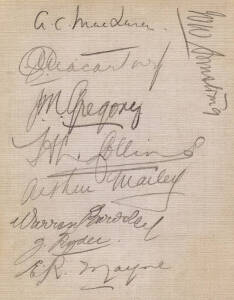 A. C. MacLaren
J M Gregory
H L Collins
Arthur Mailey
Warren Bardsley
J. Ryder.
E. R. Mayne
W W Armstrong